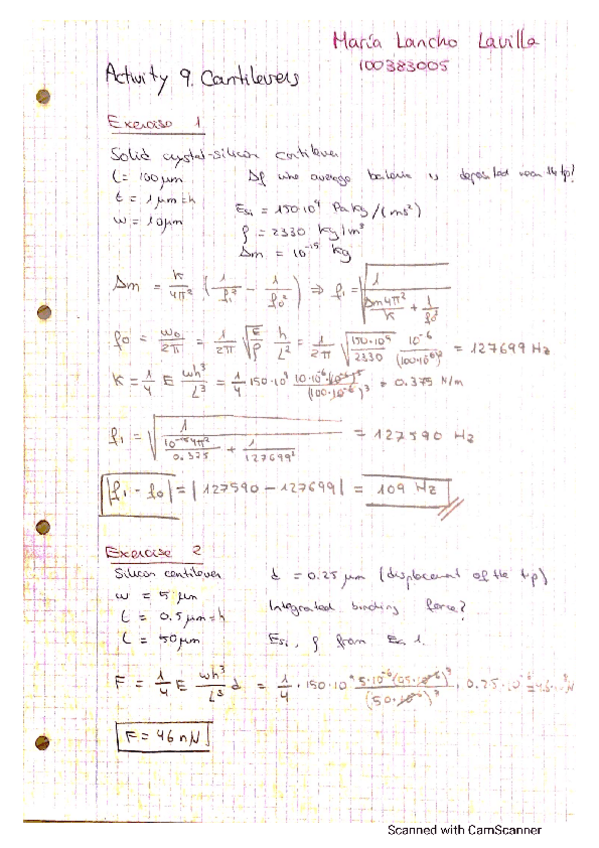 María Lancho Lavilla
100383005
Activity 9. Cantilevers
Exercise 1
Solid crystal-silicon cantilever
L = 100 μm   Δf who average bacteria is deposited near the tip?
t = 1 μm = h   E_Si = 150·10⁹ Pa kg/(ms²)
w = 10 μm   ρ = 2330 kg/m³
Δm = 10⁻¹⁵ kg
Δm = K/4π² (1/f₁² − 1/f₀²) ⇒ f₁ = √(1/(Δm4π²/K + 1/f₀²))
f₀ = w₀/2π = 1/2π √(E/ρ) h/L² = 1/2π √(150·10⁹/2330) 10⁻⁶/(100·10⁻⁶)² = 127699 Hz
K = 1/4 E wh³/L³ = 1/4 150·10⁹ 10·10⁻⁶(10⁻⁶)³/(100·10⁻⁶)³ = 0.375 N/m
f₁ = √(1/(10⁻¹⁵4π²/0.375 + 1/127699²)) = 127590 Hz
|f₁ - f₀| = |127590 − 127699| = 109 Hz
Exercise 2
Silicon cantilever   d = 0.25 μm (displacement of the tip)
w = 5 μm   Integrated binding force?
t = 0.5 μm = h
L = 50 μm   E_Si, ρ from Ex 1.
F = 1/4 E wh³/L³ d = 1/4 · 150·10⁹ 5·10⁻⁶(0.5·10⁻⁶)³/(50·10⁻⁶)³ · 0.25·10⁻⁶
F = 46 nN
Scanned with CamScanner